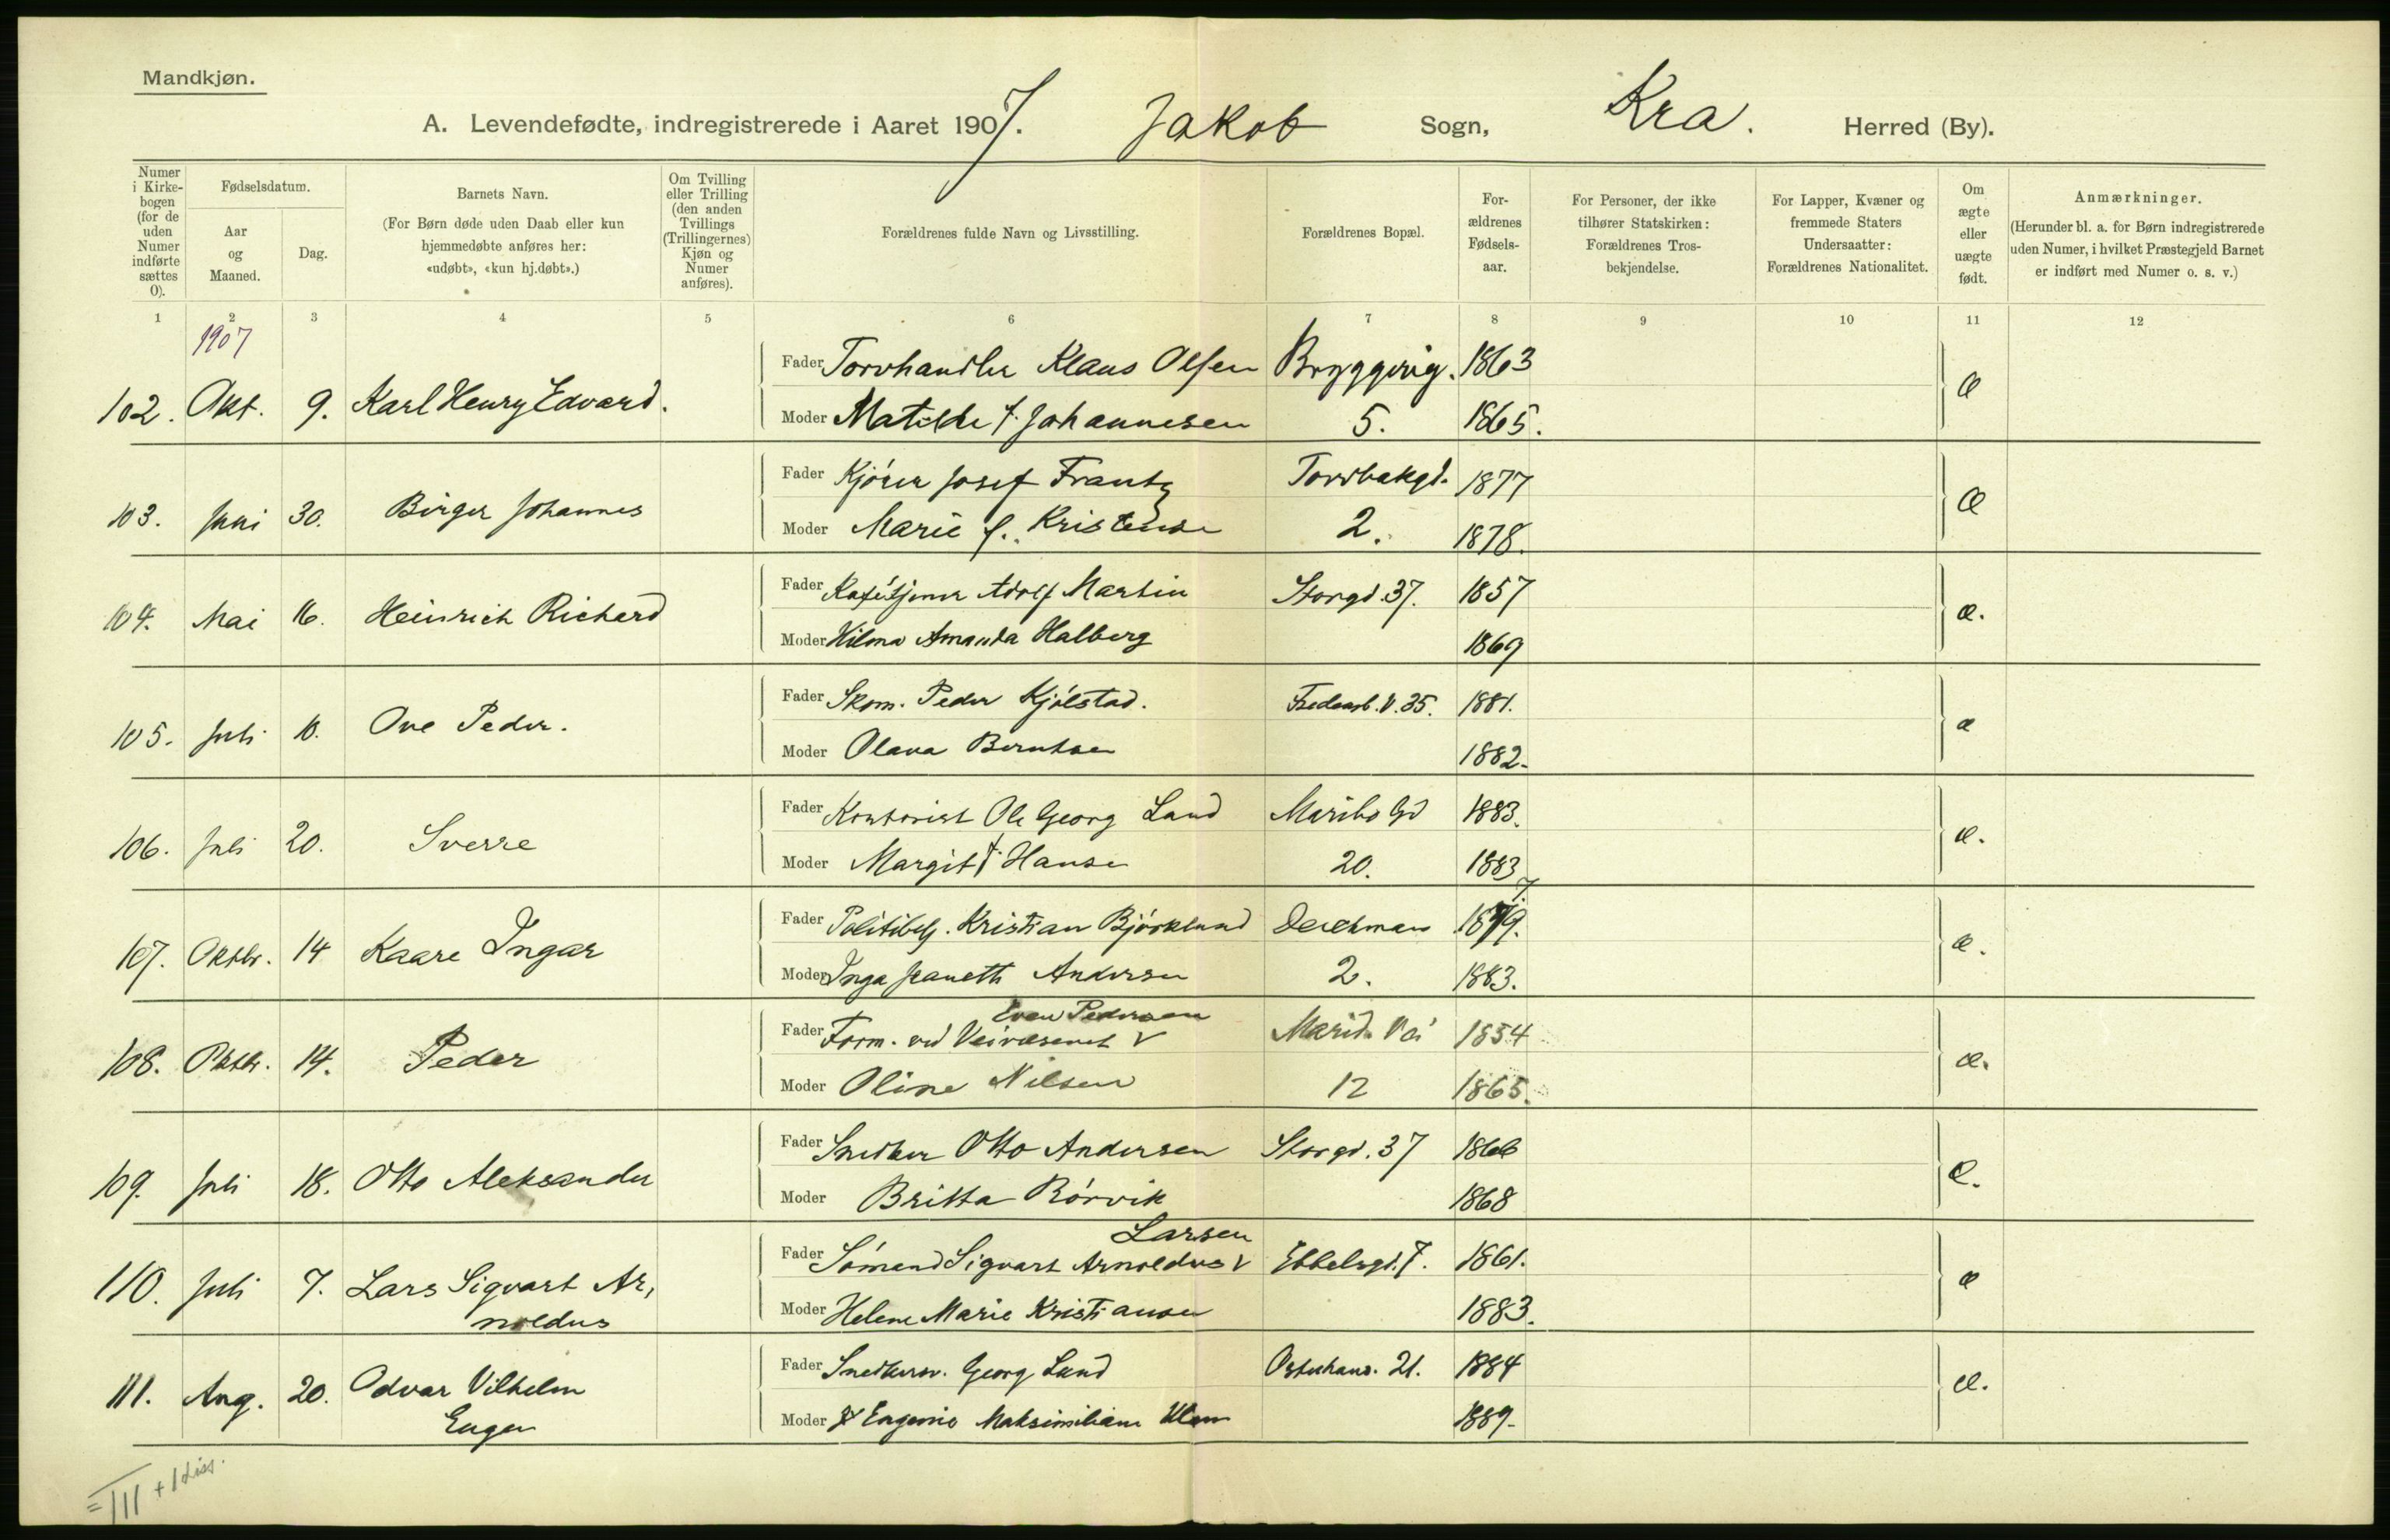 Mandkjøn.
A. Levendefødte, indregistrerede i Aaret 1907. Jakob Sogn, Kra. Herred (By).
Numer i Kirkebogen (for de uden Numer indførte sættes 0).
Fødselsdatum.
Aar og Maaned.
Dag.
Barnets Navn.
(For Børn døde uden Daab eller kun hjemmedøbte anføres her: «udøbt», «kun hj.døbt».)
Om Tvilling eller Trilling (den anden Tvillings (Trillingernes) Kjøn og Numer anføres).
Forældrenes fulde Navn og Livsstilling.
Forældrenes Bopæl.
Forældrenes Fødselsaar.
For Personer, der ikke tilhører Statskirken: Forældrenes Trosbekjendelse.
For Lapper, Kvæner og fremmede Staters Undersaatter: Forældrenes Nationalitet.
Om ægte eller uægte født.
Anmærkninger.
(Herunder bl. a. for Børn indregistrerede uden Numer, i hvilket Præstegjeld Barnet er indført med Numer o. s. v.)
1 2 3 4 5 6 7 8 9 10 11 12
1907
Fader Torvhandler Klaus Olsen Bryggerig. 1863
102. Okt. 9. Karl Henry Edvard. æ
Moder Matilde f. Johannesen 5. 1865.
Fader Kjörer Josef Frantz Torvbakgd. 1877
103. Juni 30. Birger Johannes æ
Moder Marie f. Kristensen 2. 1878.
Fader Kafétjener Adolf Martin Storgd. 37. 1857
104. Mai 16. Heinrich Richard æ.
Moder Hilma Amanda Halberg 1869
Fader Skom. Peder Kjölstad. Fredensb. V. 35. 1881.
105. Juli 10. Ove Peder. æ
Moder Olava Berntsen 1882.
Fader Kontorist Ole Georg Land Maribo Gd 1883.
106. Juli 20. Sverre æ.
Moder Margit f. Hansen 20. 1883
Fader Politibetj. Kristian Björklund Deichmans 1879.
107. Oktbr. 14 Kaare Ingar æ.
Moder Inga Jeanette Andersen 2. 1883.
Even Pedersen
Fader Form. ved Veivæsenet V Marid. Vei 1854
108. Oktbr. 14. Peder æ.
Moder Oline Nilsen 12 1865.
Fader Snedker Otto Andersen Storgd. 37 1866
109. Juli 18. Otto Aleksander æ.
Moder Britta Rörvik 1868
Larsen
Fader Sömand Sigvart Arnoldus V Ebbelsgd. 7. 1861.
110. Juli 7. Lars Sigvart Ar- æ
noldus
Moder Helene Marie Kristiansen 1883.
Fader Snedkersv. Georg Land Osterhaus. 21. 1884
111. Aug. 20. Odvar Vilhelm æ.
Eugen
Moder Eugenie Maksimiliane 1889.
= 111 + 1 diss.